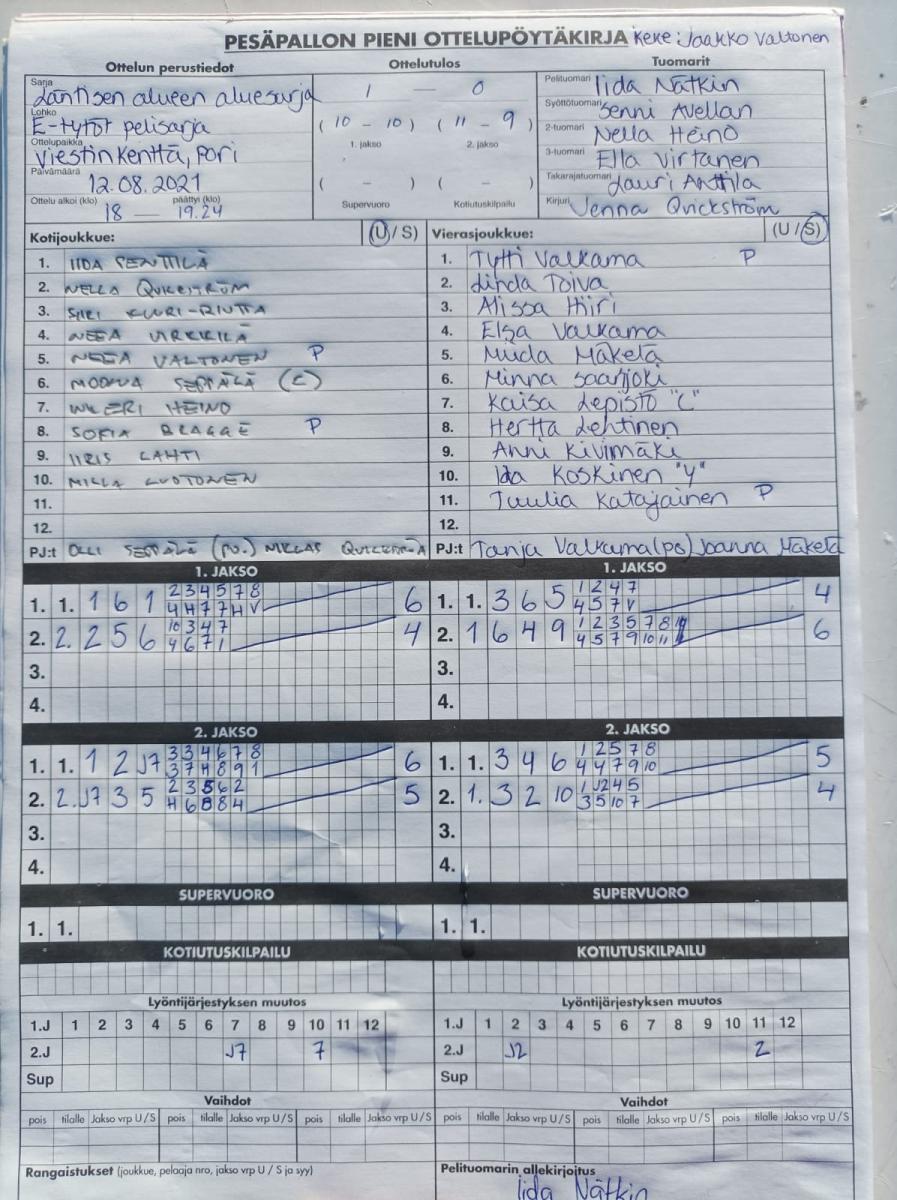 PESÄPALLON PIENI OTTELUPÖYTÄKIRJA Keke: Jaakko Valtonen
Ottelun perustiedot Ottelutulos Tuomarit
Sarja Läntisen alueen aluesarja 1 — 0 Pelituomari Iida Nätkin
Lohko E-tytöt pelisarja (10 - 10) (11 - 9) Syöttötuomari Senni Avellan
Ottelupaikka Viestinkenttä, Pori 1. jakso 2. jakso 2-tuomari Nella Heino
Päivämäärä 12.08.2021 ( - ) ( - ) 3-tuomari Ella Virtanen
Ottelu alkoi (klo) 18 — päättyi (klo) 19.24 Supervuoro Kotiutuskilpailu Takarajatuomari Lauri Anttila
Kirjuri Venna Qvickström
Kotijoukkue: (U/S) Vierasjoukkue: (U/S)
1. IIDA PENTTILÄ 1. Tytti Valkama P
2. NELLA QVICKSTRÖM 2. Linda Toiva
3. SIIRI KUURI-RIUTTA 3. Alissa Hiiri
4. NEEA 4. Elsa Valkama
5. NEEA VALTONEN P 5. Miida Mäkelä
6. SEPPÄLÄ (C) 6. Minna Saarijoki
7. HEINO 7. Kaisa Lepistö "C"
8. SOFIA BRAGGE P 8. Hertta Lehtinen
9. IIRIS LAHTI 9. Anni Kivimäki
10. MILLA LUOTONEN 10. Ida Koskinen "Y"
11. 11. Tuulia Katajainen P
12. 12.
PJ:t OLLI SEPPÄLÄ (PJ.) NIKLAS PJ:t Tanja Valkama (pj) Joanna Mäkelä
1. JAKSO 1. JAKSO
2 3 4 5 7 8 1 2 4 7
1. 1. 1 6 1 4 H 7 7 H V 6 1. 1. 3 6 5 4 5 7 V 4
10 3 4 7 1 2 3 5 7 8
2. 2. 2 5 6 4 6 7 1 4 2. 1 6 4 9 4 5 7 9 10 11 6
3. 3.
4. 4.
2. JAKSO 2. JAKSO
3 3 4 6 7 8 1 2 5 7 8
1. 1. 1 2 J7 3 7 H 8 9 1 6 1. 1. 3 4 6 4 4 7 9 10 5
2 3 5 6 2 1 J2 4 5
2. 2. J7 3 5 H 6 8 8 4 5 2. 1. 3 2 10 3 5 10 7 4
3. 3.
4. 4.
SUPERVUORO SUPERVUORO
1. 1. 1. 1.
KOTIUTUSKILPAILU KOTIUTUSKILPAILU
Lyöntijärjestyksen muutos Lyöntijärjestyksen muutos
1.J 1 2 3 4 5 6 7 8 9 10 11 12 1.J 1 2 3 4 5 6 7 8 9 10 11 12
2.J J7 7 2.J J2 2
Sup Sup
Vaihdot Vaihdot
pois tilalle Jakso vrp U/S pois tilalle Jakso vrp U/S pois tilalle Jakso vrp U/S pois tilalle Jakso vrp U/S pois tilalle Jakso vrp U/S pois tilalle Jakso vrp U/S
Rangaistukset (joukkue, pelaaja nro, jakso vrp U / S ja syy) Pelituomarin allekirjoitus
Iida Nätkin